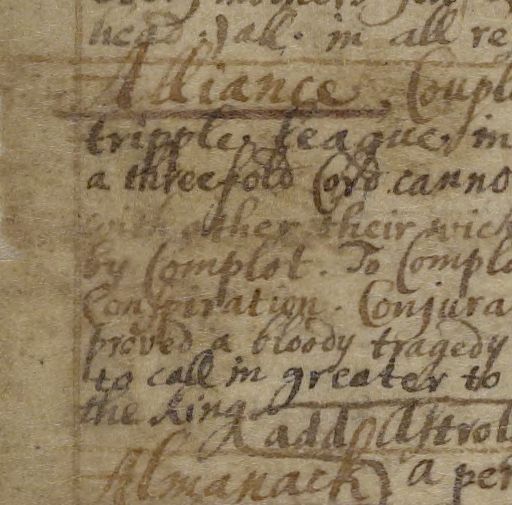 head :) all. in all re
Alliance. Coupl
tripple, league, in
a threefold Cord canno
with other their wick
by Complot. To Complo
Conspiration. Conjura
proved a bloody tragedy
to call in greater to
the king
add Astrol
Almanack) a per